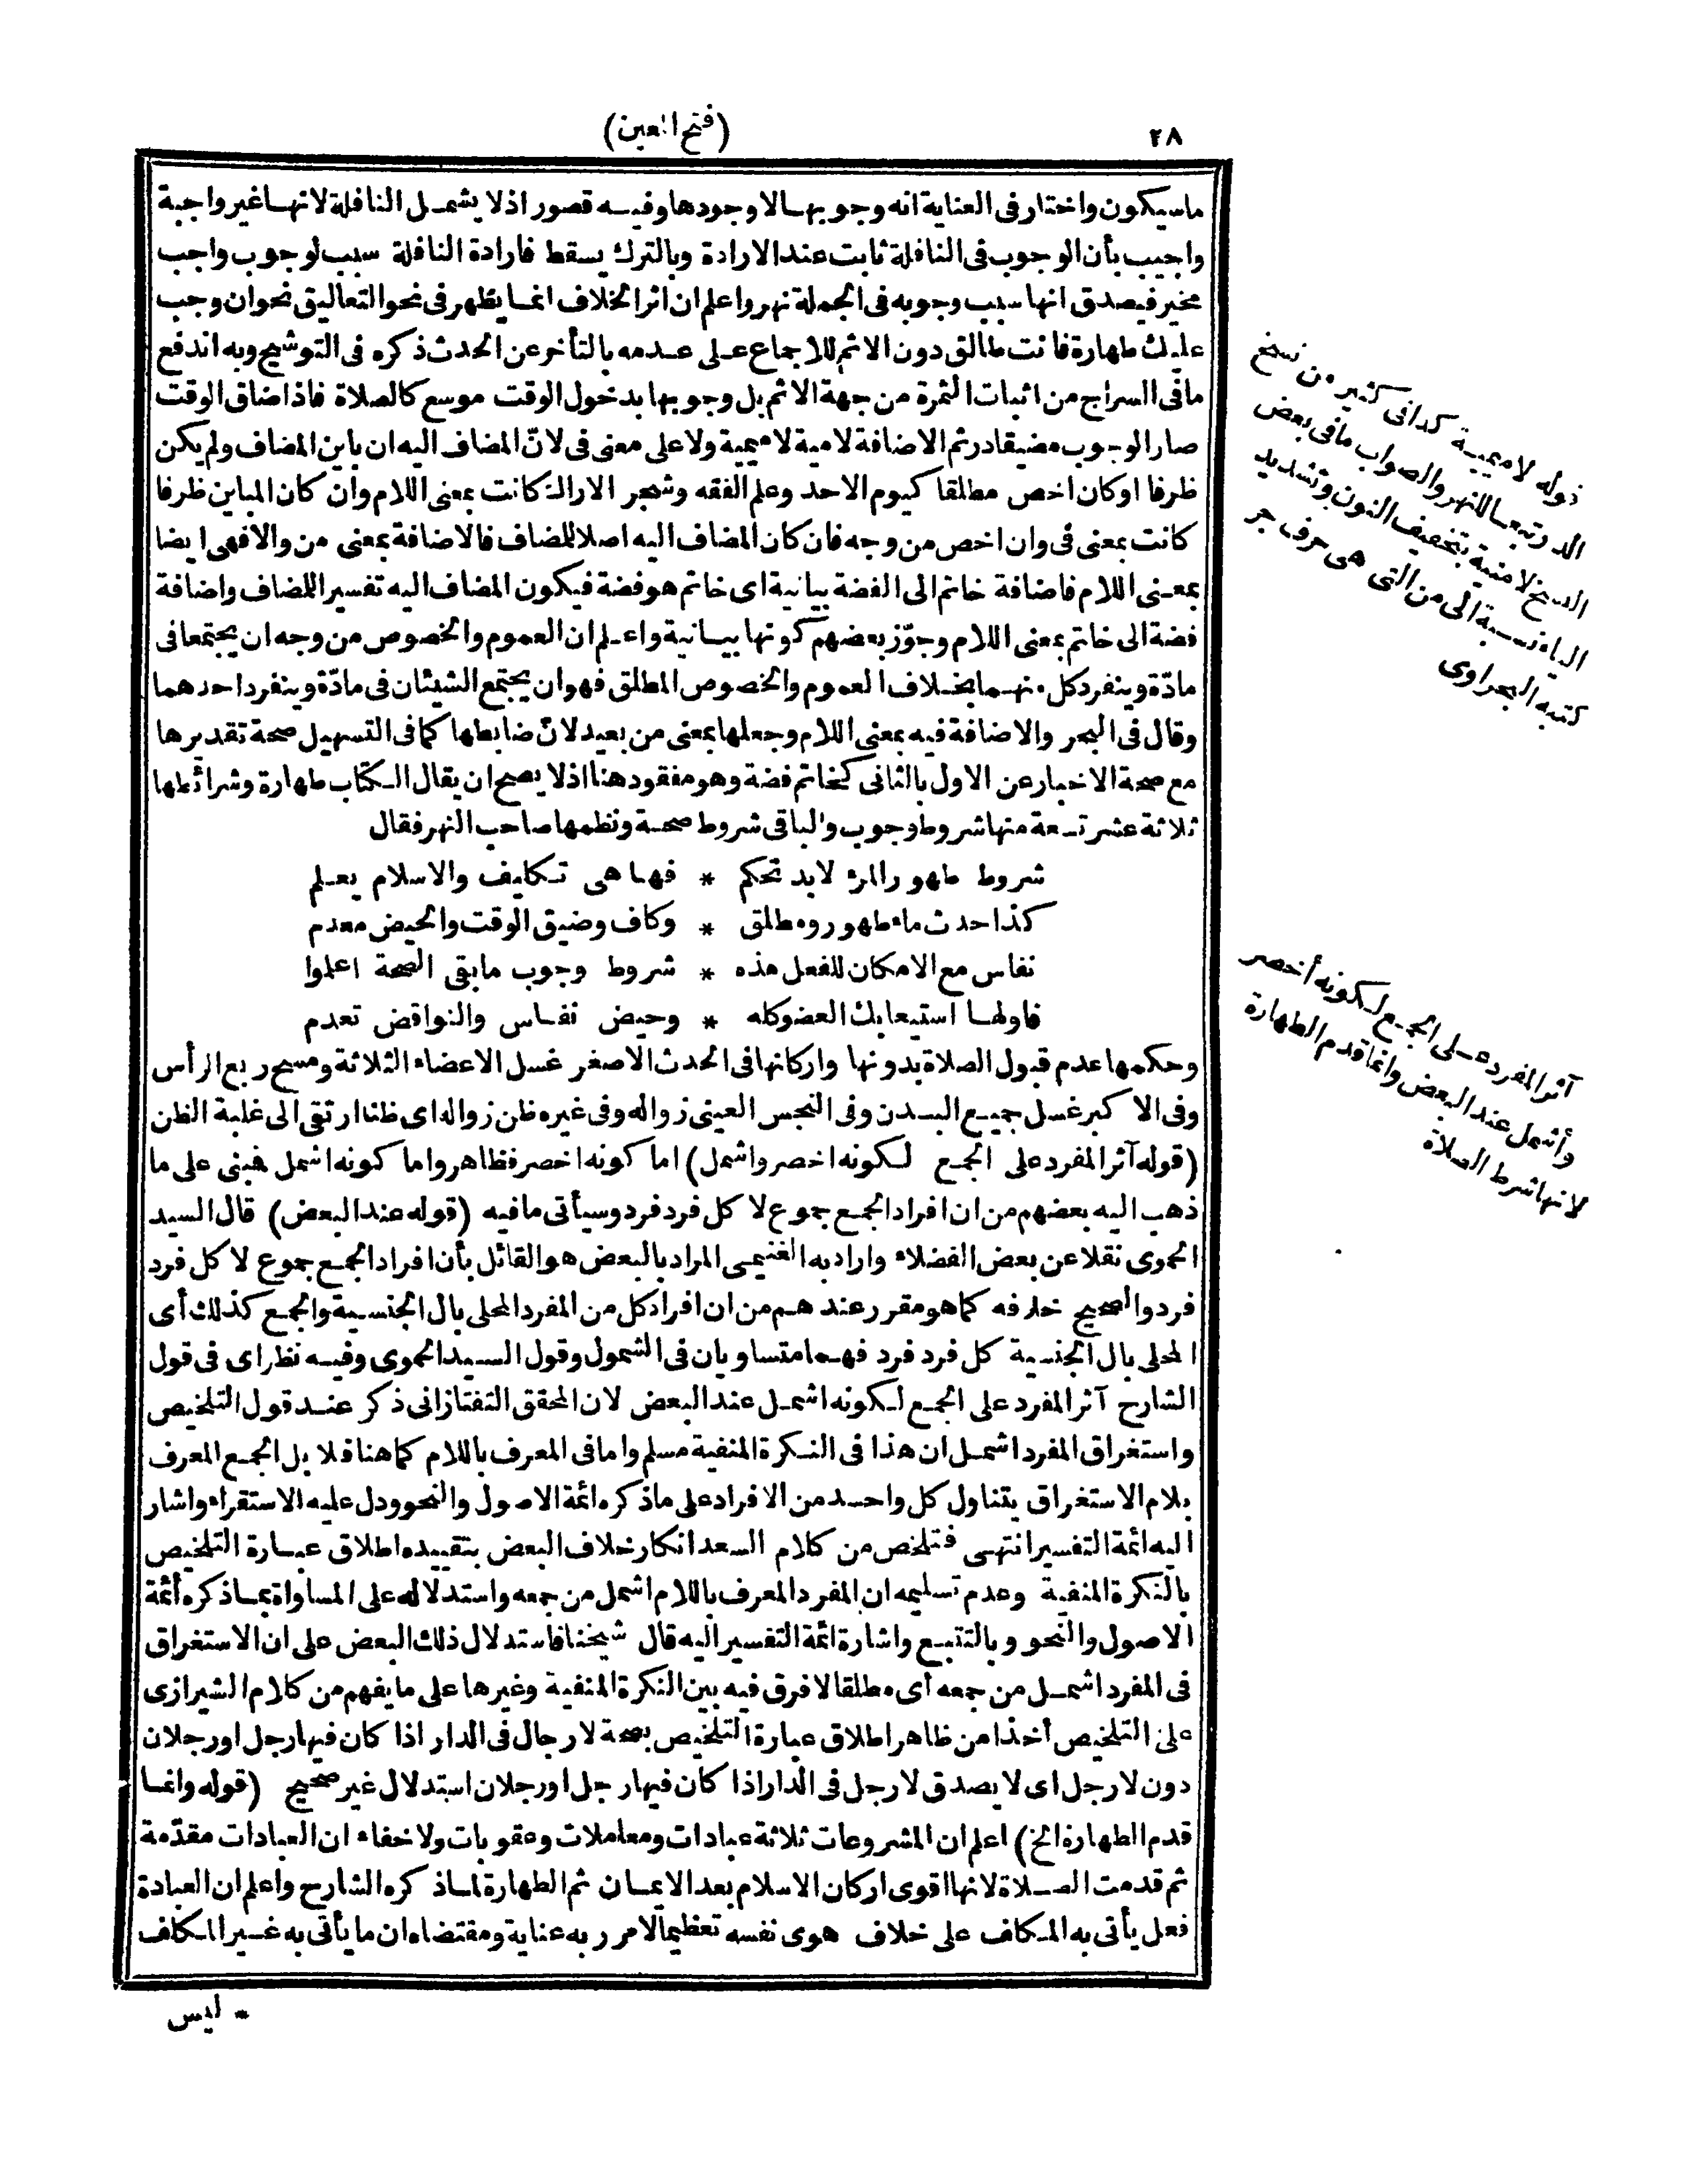 ٢٨
(فتح المعين)
ماسيكون واختار فى العناية انه وجوبها لا وجودها وفيه قصور اذ لا يشمل النافلة لانها غير واجبة
واجيب بأن الوجوب فى النافلة ثابت عند الارادة وبالترك يسقط فارادة النافلة سبب لوجوب واجب
مخير فيصدق انها سبب وجوبه فى الجملة نهر واعلم ان اثر الخلاف انما يظهر فى نحو التعاليق نحو ان وجب
عليك طهارة فانت طالق دون الاثم للاجماع على عدمه بالتأخر عن الحدث ذكره فى التوشيح وبه اندفع
مافى السراج من اثبات الثمرة من جهة الاثم بل وجوبها بدخول الوقت موسع كالصلاة فاذا ضاق الوقت
صار الوجوب مضيقا در ثم الاضافة لامية لا ميمية ولا على معنى فى لانّ المضاف اليه ان باين المضاف ولم يكن
ظرفا او كان اخص مطلقا كيوم الاحد وعلم الفقه وشجر الاراك كانت بمعنى اللام وان كان المباين ظرفا
كانت بمعنى فى وان اخص من وجه فان كان المضاف اليه اصلا للمضاف فالاضافة بمعنى من والا فهى ايضا
بمعنى اللام فاضافة خاتم الى الفضة بيانية اى خاتم هو فضة فيكون المضاف اليه تفسيرا للمضاف واضافة
فضة الى خاتم بمعنى اللام وجوّز بعضهم كونها بيانية واعلم ان العموم والخصوص من وجه ان يجتمعا فى
مادّة وينفرد كل منهما بخلاف العموم والخصوص المطلق فهو ان يجتمع الشيئان فى مادّة وينفرد احدهما
وقال فى البحر والاضافة فيه بمعنى اللام وجعلها بمعنى من بعيد لانّ ضابطها كما فى التسهيل صحة تقديرها
مع صحة الاخبار عن الاول بالثانى كخاتم فضة وهو مفقود هنا اذ لا يصح ان يقال الكتاب طهارة وشرائطها
ثلاثة عشر تسعة منها شروط وجوب والباقى شروط صحة ونظمها صاحب النهر فقال
شروط طهور المرء لابد تحكم * فها هى تكليف والاسلام يعلم
كذا حدث ماء طهور ومطلق * وكاف وضيق الوقت والحيض معدم
نفاس مع الامكان للفعل هذه * شروط وجوب مابقى الصحة اعلموا
فاولها استيعابك العضو كله * وحيض نفاس والنواقض تعدم
وحكمها عدم قبول الصلاة بدونها واركانها فى الحدث الاصغر غسل الاعضاء الثلاثة ومسح ربع الرأس
وفى الاكبر غسل جميع البدن وفى النجس العينى زواله وفى غيره ظن زواله اى ظنا ارتقى الى غلبة الظن
(قوله آثر المفرد على الجمع لكونه اخصر واشمل) اما كونه اخصر فظاهر واما كونه اشمل فبنى على ما
ذهب اليه بعضهم من ان افراد الجمع جموع لا كل فرد فرد وسيأتى مافيه (قوله عند البعض) قال السيد
الحموى نقلا عن بعض الفضلاء واراد به الغنيمى المراد بالبعض هو القائل بأن افراد الجمع جموع لا كل فرد
فرد والصحيح خلافه كما هو مقرر عندهم من ان افراد كل من المفرد المحلى بال الجنسية والجمع كذلك أى
المحلى بال الجنسية كل فرد فرد فهما متساويان فى الشمول وقول السيد الحموى وفيه نظر اى فى قول
الشارح آثر المفرد على الجمع لكونه اشمل عند البعض لان المحقق التفتازانى ذكر عند قول التلخيص
واستغراق المفرد اشمل ان هذا فى النكرة المنفية مسلم واما فى المعرف باللام كما هنا فلا بل الجمع المعرف
بلام الاستغراق يتناول كل واحد من الافراد على ماذكره ائمة الاصول والنحو ودل عليه الاستقراء واشار
اليه ائمة التفسير انتهى فتلخص من كلام السعد انكار خلاف البعض بتقييده اطلاق عبارة التلخيص
بالنكرة المنفية وعدم تسليمه ان المفرد المعرف باللام اشمل من جمعه واستدلاله على المساواة بما ذكره أئمة
الاصول والنحو وبالتتبع واشارة ائمة التفسير اليه قال شيخنا فاستدلال ذلك البعض على ان الاستغراق
فى المفرد اشمل من جمعه أى مطلقا لا فرق فيه بين النكرة المنفية وغيرها على مايفهم من كلام الشيرازى
على التلخيص أخذا من ظاهر اطلاق عبارة التلخيص بصحة لا رجال فى الدار اذا كان فيها رجل او رجلان
دون لا رجل اى لا يصدق لا رجل فى الدار اذا كان فيها رجل او رجلان استدلال غير صحيح (قوله وانما
قدم الطهارة الخ) اعلم ان المشروعات ثلاثة عبادات ومعاملات وعقوبات ولا خفاء ان العبادات مقدّمة
ثم قدمت الصلاة لانها اقوى اركان الاسلام بعد الايمان ثم الطهارة لما ذكره الشارح واعلم ان العبادة
فعل يأتى به المكلف على خلاف هوى نفسه تعظيما لامر ربه عناية ومقتضاه ان ما يأتى به غير المكلف
* ليس
قوله لا ميمية كذا فى كثير من نسخ
الدر تبعا للنهر والصواب مافى بعض
النسخ لا منية بتخفيف النون وتشديد
الياء نسبة الى من التى هى حرف جر
كتبه البحراوى
آثر المفرد على الجمع لكونه أخصر
وأشمل عند البعض وانما قدم الطهارة
لانها شرط الصلاة